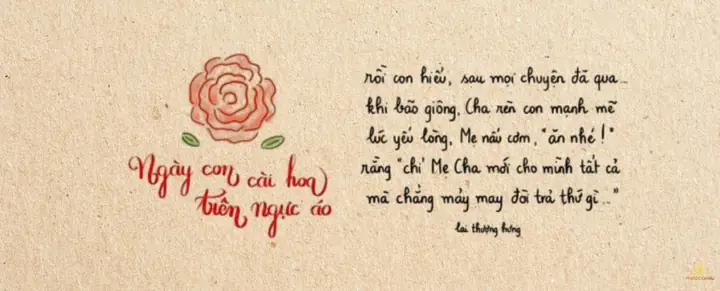 Ngày con cài hoa
trên ngực áo
rồi con hiểu, sau mọi chuyện đã qua...
khi bão giông, Cha rèn con mạnh mẽ
lúc yếu lòng, Mẹ nấu cơm, "ăn nhé!"
rằng "chỉ" Mẹ Cha mới cho mình tất cả
mà chẳng mảy may đòi trả thứ gì..."
lai thượng hưng